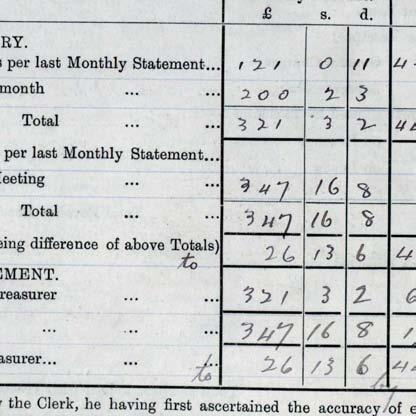 £ s. d.
RY.
s per last Monthly Statement... 121 0 11 4
month ... ... 200 2 3
Total ... ... 321 3 2 44
per last Monthly Statement...
Meeting ... ... 347 16 8
Total ... ... 347 16 8
eing difference of above Totals) 26 13 6 4
to
EMENT.
reasurer ... ... 321 3 2 6
... ... 347 16 8 1
asurer... ... 26 13 6 44
to by
y the Clerk, he having first ascertained the accuracy of e